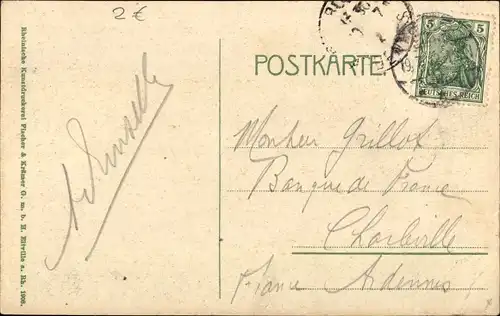 2 €
POSTKARTE
5 5
DEUTSCHES REICH
Rheinische Kunstdruckerei Fischer & Krämer G. m. b. H. Eltville a. Rh. 1906.
Monsieur Grillot
Banque de France
Charleville
France Ardennes